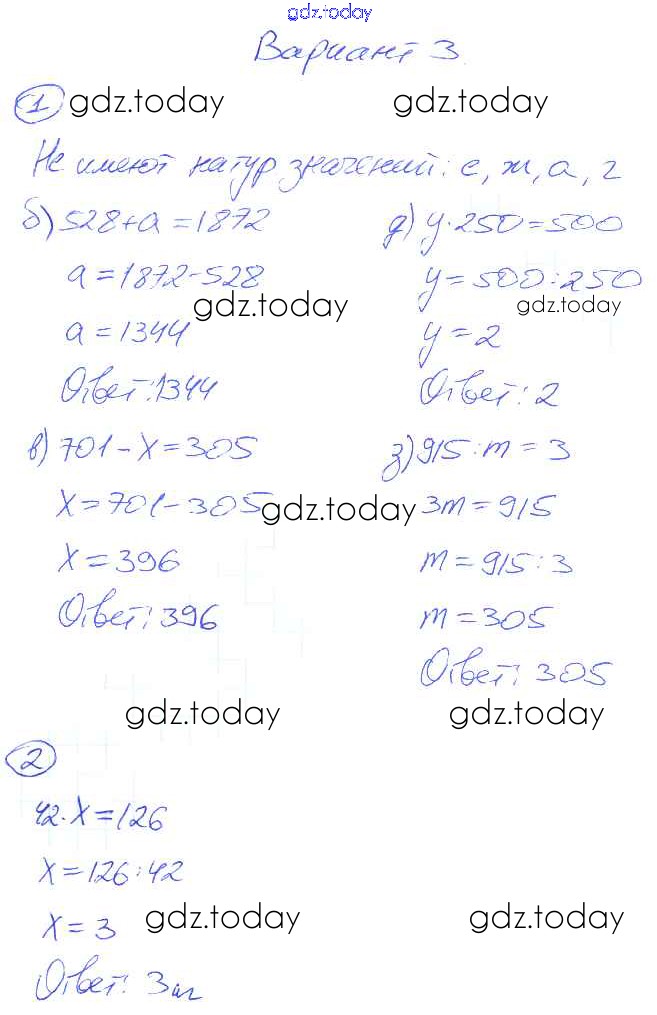 gdz.today
Вариант 3
1 gdz.today gdz.today
Не имеют натур значений: е, ж, а, г
б) 528+a=1872
a=1872-528
gdz.today
a=1344
Ответ: 1344
д) y·250=500
y=500:250
gdz.today
y=2
Ответ: 2
в) 701-x=305
x=701-305
gdz.today
x=396
Ответ: 396
з) 915:m=3
3m=915
m=915:3
m=305
Ответ: 305
gdz.today gdz.today
2
42·x=126
x=126:42
x=3
gdz.today gdz.today
Ответ: 3 кг